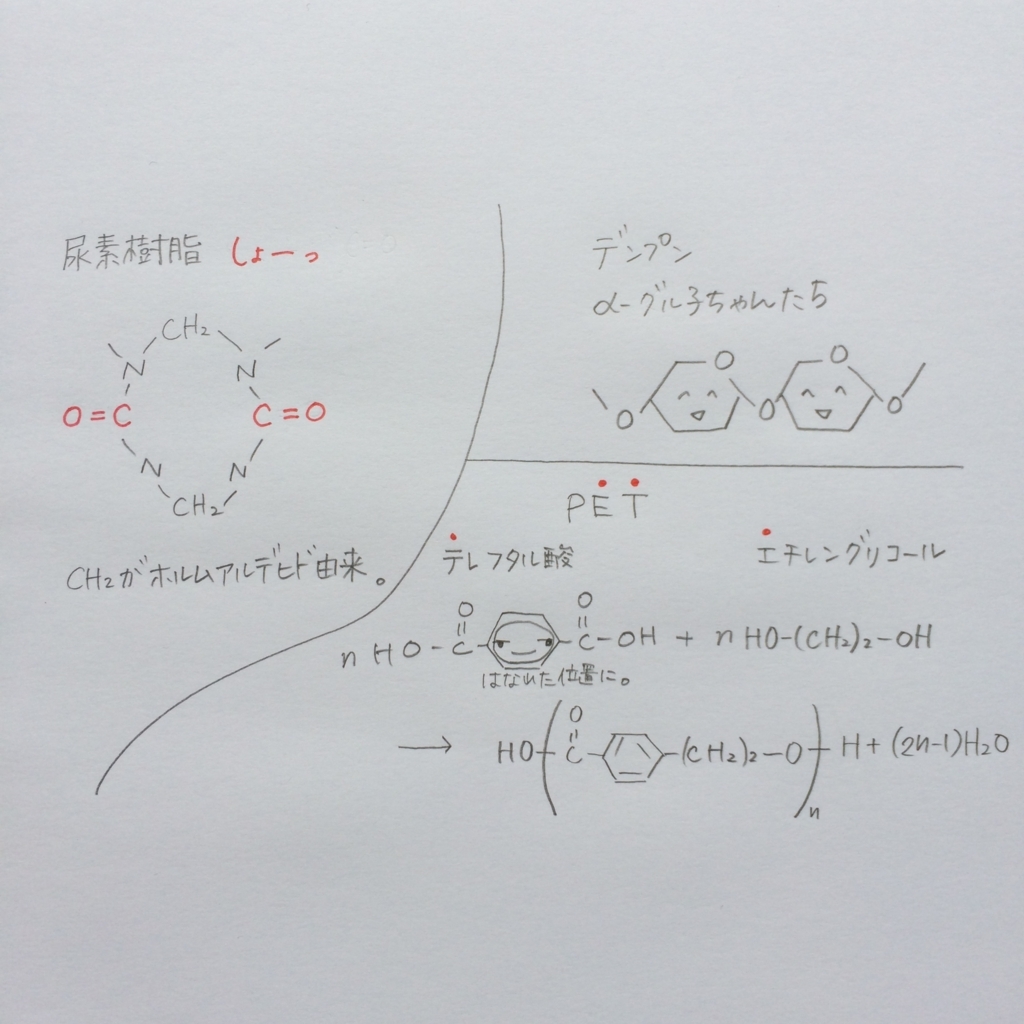 尿素樹脂 しょーっ
CH2
N N
O=C C=O
N N
CH2
CH2がホルムアルデヒド由来。
デンプン
α-グル子ちゃんたち
O O
O O O
PET
テレフタル酸 エチレングリコール
O O
n HO-C C-OH + n HO-(CH2)2-OH
はなれた位置に。
O
→ HO ( C -(CH2)2-O ) H + (2n-1)H2O
n